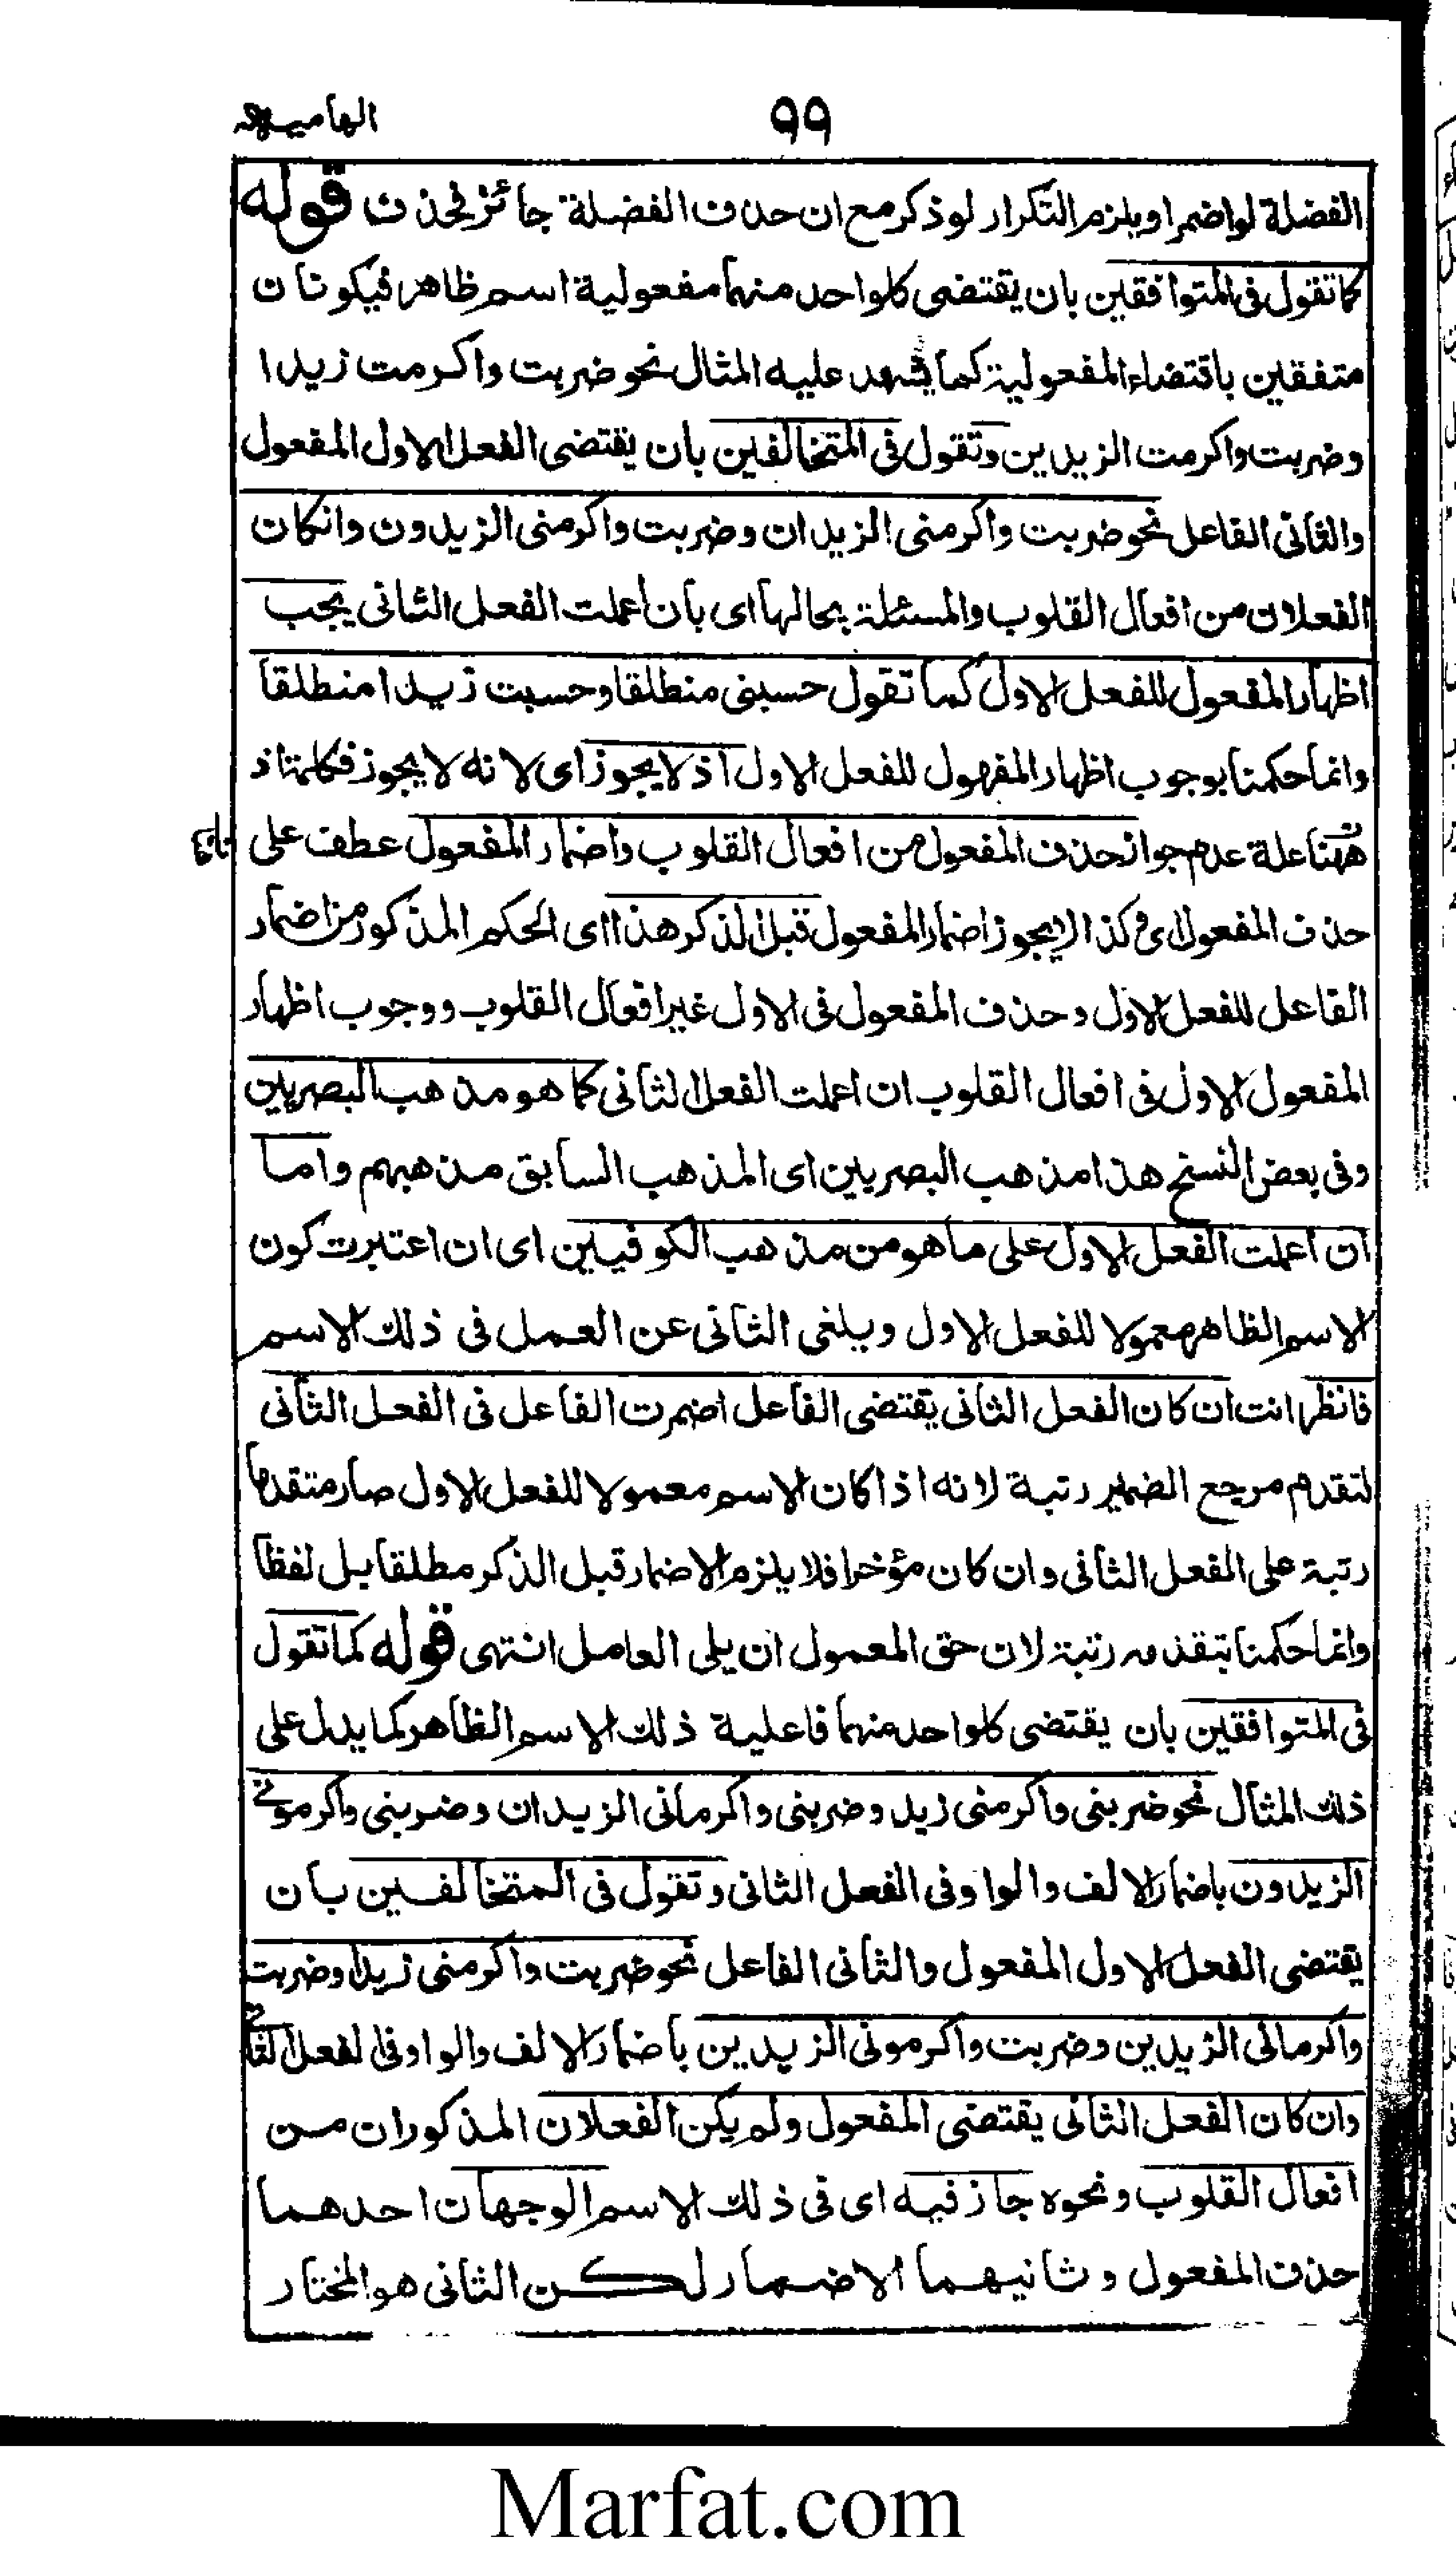 الهامیه
۹۹
الفضلة لو اضمر او یلزم التکرار لو ذکر مع ان حذف الفضلة جائز فحذف قوله
کما تقول فی المتوافقین بان یقتضی کلواحد منهما مفعولیة اسم ظاهر فیکونان
متفقین باقتضاء المفعولیة کما یشهد علیه المثال نحو ضربت واکرمت زیدا
وضربت واکرمت الزیدین وتقول فی المتخالفین بان یقتضی الفعل الاول المفعول
والثانی الفاعل نحو ضربت واکرمنی الزیدان وضربت واکرمنی الزیدون وانکان
الفعلان من افعال القلوب والمسئلة بحالها ای بان اعملت الفعل الثانی یجب
اظهار المفعول للفعل الاول کما تقول حسبنی منطلقا وحسبت زیدا منطلقا
وانما حکمنا بوجوب اظهار المفعول للفعل الاول اذ لا یجوز ای لانه لا یجوز فکلمة اذ
ههنا علة عدم جواز حذف المفعول من افعال القلوب واضمار المفعول عطف علی
حذف المفعول ای وکذا لا یجوز اضمار المفعول قبل الذکر هذا ای الحکم المذکور من اضمار
الفاعل للفعل الاول وحذف المفعول فی الاول غیر افعال القلوب ووجوب اظهار
المفعول الاول فی افعال القلوب ان اعملت الفعل الثانی کما هو مذهب البصریین
وفی بعض النسخ هذا مذهب البصریین ای المذهب السابق مذهبهم واما
ان اعملت الفعل الاول علی ما هو من مذهب الکوفیین ای ان اعتبرت کون
الاسم الظاهر معمولا للفعل الاول ویلغی الثانی عن العمل فی ذلك الاسم
فانظر انت ان کان الفعل الثانی یقتضی الفاعل اضمرت الفاعل فی الفعل الثانی
لتقدم مرجع الضمیر رتبة لانه اذا کان الاسم معمولا للفعل الاول صار متقدما
رتبة علی الفعل الثانی وان کان مؤخرا فلا یلزم الاضمار قبل الذکر مطلقا بل لفظا
وانما حکمنا بتقدمه رتبة لان حق المعمول ان یلی العامل انتهی قوله کما تقول
فی المتوافقین بان یقتضی کلواحد منهما فاعلیة ذلك الاسم الظاهر کما یدل علی
ذلك المثال نحو ضربنی واکرمنی زید وضربنی واکرمانی الزیدان وضربنی واکرمونی
الزیدون باضمار الالف والواو فی الفعل الثانی وتقول فی المتخالفین بان
یقتضی الفعل الاول المفعول والثانی الفاعل نحو ضربت واکرمنی زیدا وضربت
واکرمانی الزیدین وضربت واکرمونی الزیدین باضمار الالف والواو فی الفعل الثانی
وان کان الفعل الثانی یقتضی المفعول ولم یکن الفعلان المذکوران من
افعال القلوب ونحوه جاز فیه ای فی ذلك الاسم الوجهان احدهما
حذف المفعول وثانیهما الاضمار لکن الثانی هو المختار
Marfat.com